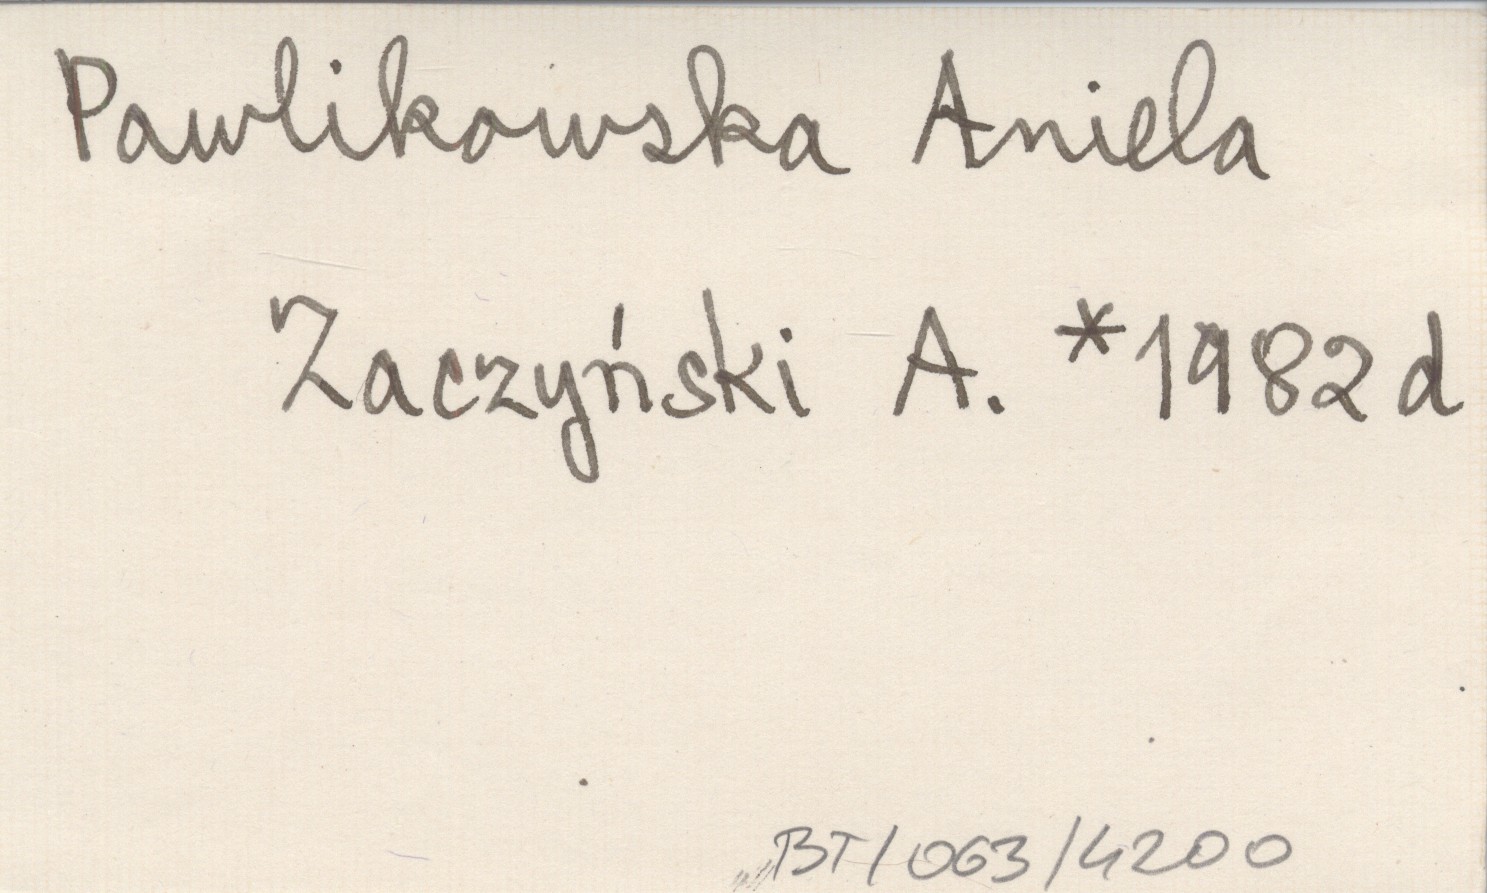 Pawlikowska Aniela
Zaczyński A. *1982 d
BT/063/4200